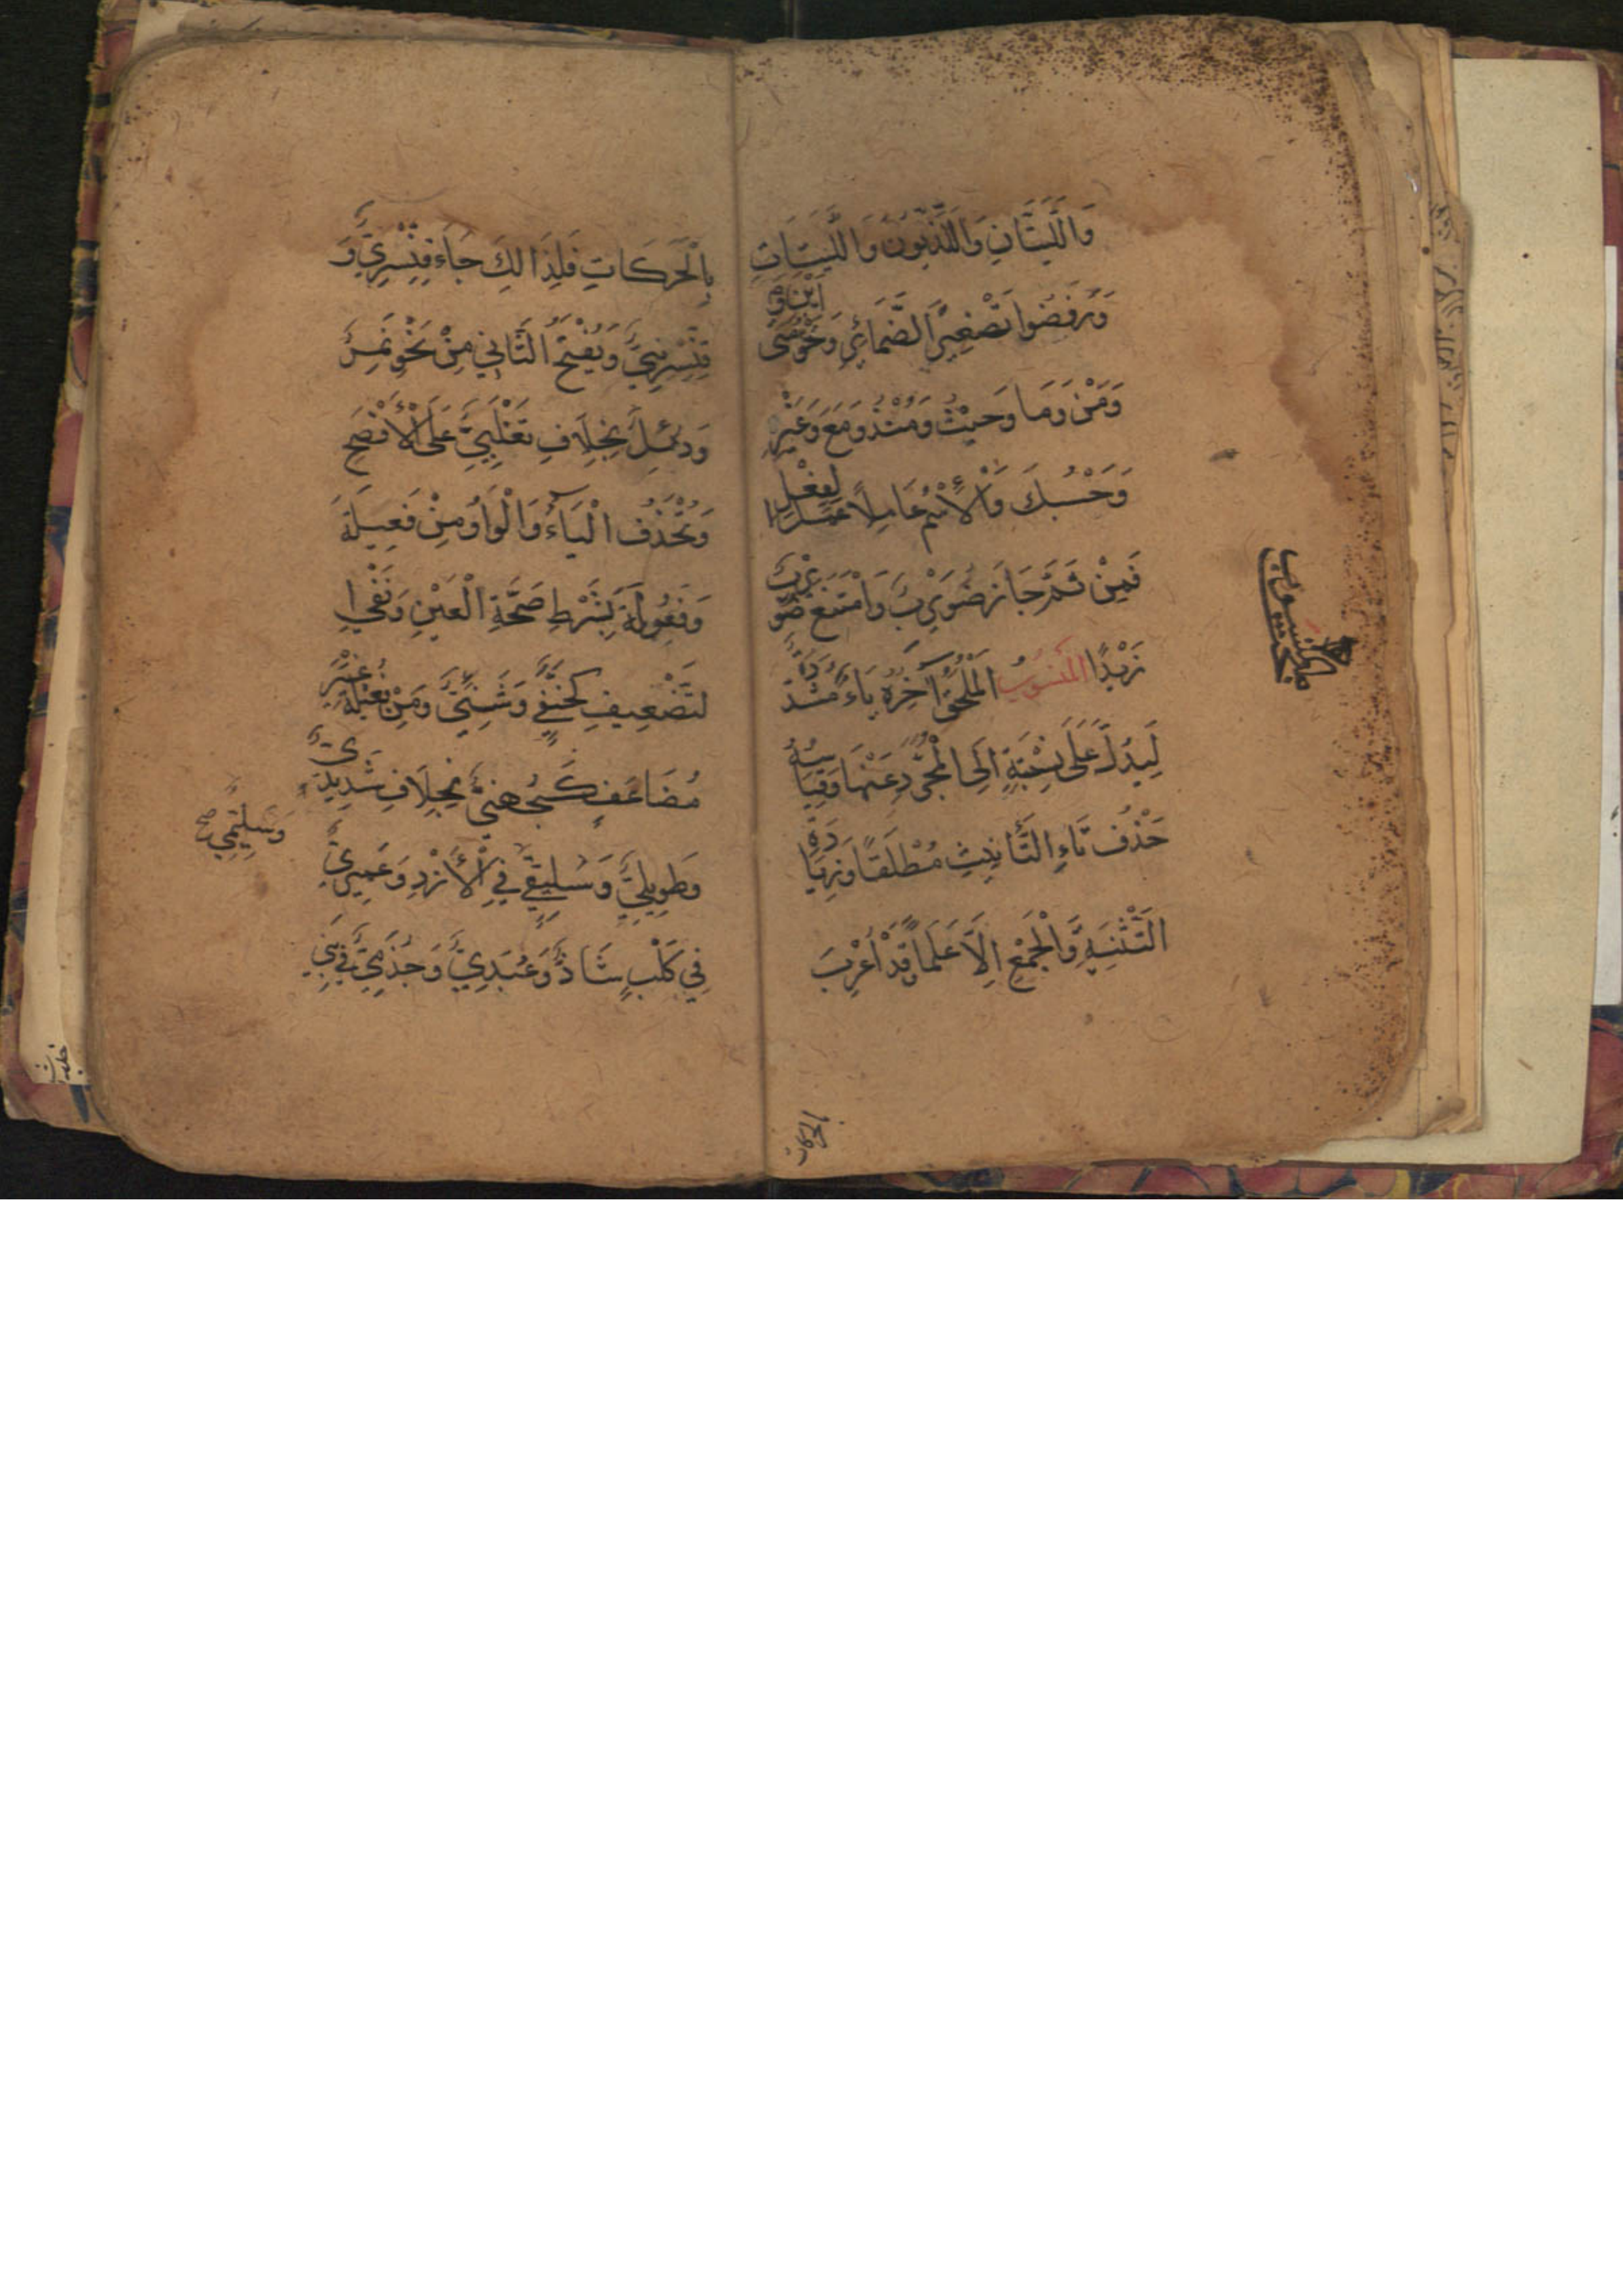 وَاللَّتَيَّانِ وَاللَّذَيُّونَ وَاللَّتَيَّاتِ
وَرَفَضُوا تَصْغِيرَ الضَّمَائِرِ وَنَحْوَ أَيْنَ وَمَتَى
وَمَنْ وَمَا وَحَيْثُ وَمُنْذُ وَمَعَ وَغَيْرِ
وَحَسْبُكَ وَالْأِسْمُ عَامِلًا عَمَلَ الْفِعْلِ
فَمِنْ ثَمَّ جَازَ ضُوَيْرِبُ وَامْتَنَعَ ضُوَيْرِبٌ
زَيْدًا الْمَنْسُوبُ الْمُلْحَقُ آخِرُهُ يَاءٌ مُشَدَّدَةٌ
لِيَدُلَّ عَلَى نِسْبَةٍ إِلَى الْمُجَرَّدِ عَنْهَا وَقِيَاسُهُ
حَذْفُ تَاءِ التَّأْنِيثِ مُطْلَقًا وَزِيَادَةِ
التَّثْنِيَةِ وَالْجَمْعِ إِلَّا عَلَمًا قَدْ أُعْرِبَ
المنسوب
بالحركات
بِالْحَرَكَاتِ فَلِذَالِكَ جَاءَ قِنَّسْرِيٌّ وَ
قِنَّسْرِينِيٌّ وَيُفْتَحُ الثَّانِي مِنْ نَحْوِ نَمِرَ
وَدُئِلَ بِخِلَافِ تَغْلِبِيٍّ عَلَى الْأَفْصَحِ
وَتُحْذَفُ الْيَاءُ وَالْوَاوُ مِنْ فَعِيلَةَ
وَفَعُولَةَ بِشَرْطِ صِحَّةِ الْعَيْنِ وَنَفْيِ ا
لتَّضْعِيفِ كَحَنَفِيٍّ وَشَنَئِيٍّ وَمِنْ فُعَيْلَةَ غَيْرَ
مُضَاعَفٍ كَجُهَنِيٍّ بِخِلَافِ شَدِيدِيٍّ
وَطَوِيلِيٍّ وَسَلِيقِيٌّ فِي الْأَزْدِ وَعَمِيرِيٌّ
وَسَلِيمِيٌّ صح
فِي كَلْبٍ شَاذٌّ وَعُبَدِيٌّ وَجُذَمِيٌّ فِي بَنِي